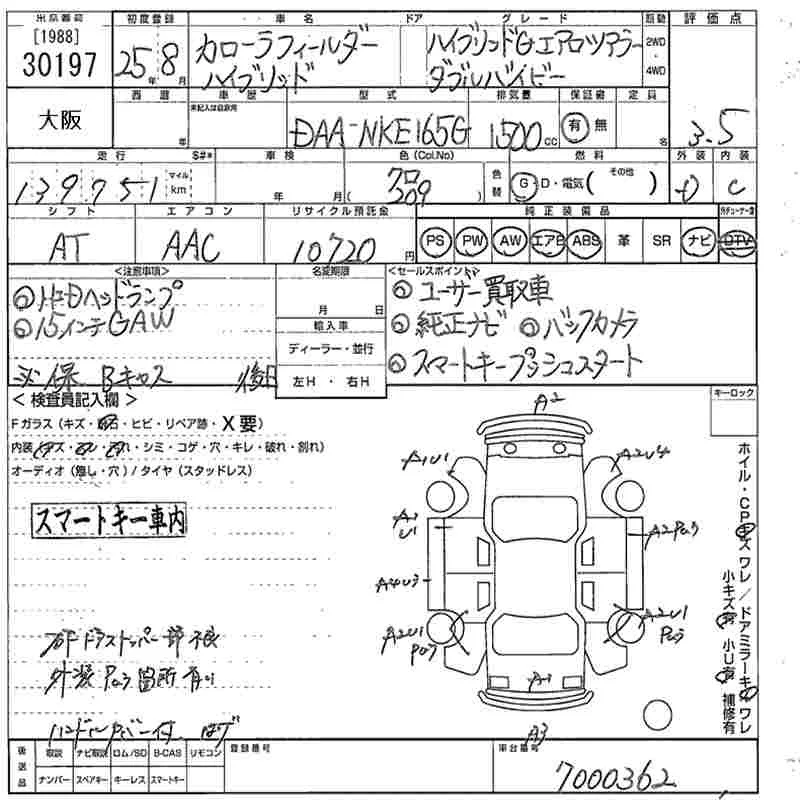 出品番号 初度登録 車名 ドア グレード 駆動 評価点
[1988] 30197 25年 8月 カローラフィールダー ハイブリッドGエアロツアラー 2WD
ハイブリッド ダブルバイビー 4WD
大阪 西暦 車歴 型式 排気量 保証書 定員
年 未記入は自家用 DAA-NKE165G 1500cc 有 無 名 3.5
走行 S#* 車検 色(Col.No) 燃料 外装 内装
139751 マイル km 年 月 クロ 209 色替 G・D・電気( その他 ) D C
シフト エアコン リサイクル預託金 純正装備品
AT AAC 10720円 PS PW AW エアB ABS 革 SR ナビ DTV
<注意事項> 名変期限 <セールスポイント>
HIDヘッドランプ 月 日 ユーザー買取車
15インチGAW 輸入車 純正ナビ バックカメラ
ディーラー・並行 スマートキープッシュスタート
保 Bキャス 後日 左H・右H
<検査員記入欄> キーロック
Fガラス(キズ・石・ヒビ・リペア跡・X要) A2
内装(キズ・・・シミ・コゲ・穴・キレ・破れ・割れ) A1U1 A2U4
オーディオ(無し・穴)/タイヤ(スタッドレス)
スマートキー車内
A1
U1
A2
A4U3
A2U1
A2U1
ドアストッパー部不良
外装 箇所有り
A1
A3
ホイル・CPキズ ワレ/ドアミラーキズ ワレ
小キズ有 小U有 補修有
後送品 取説 ナビ取説 ロム/SD B-CAS リモコン 登録番号 車台番号
ナンバー スペアキー キーレス スマートキー 7000362